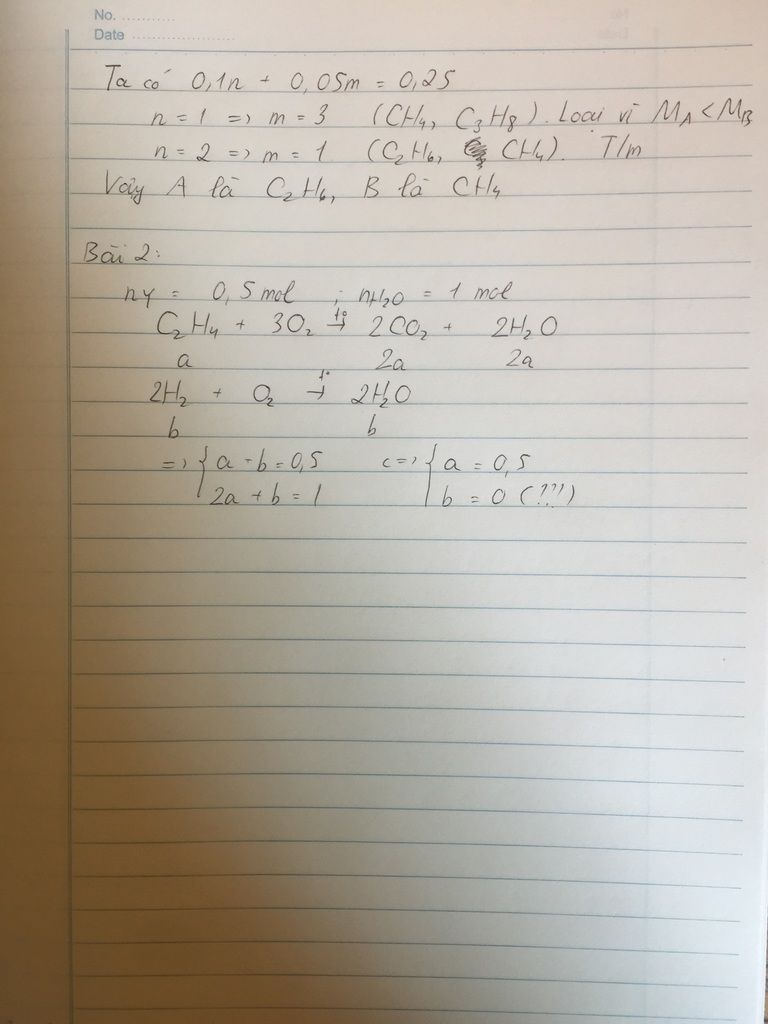 No. ..........
Date ....................
Ta có 0,1n + 0,05m = 0,25
n = 1 => m = 3 (CH₄, C₃H₈). Loại vì M_A < M_B
n = 2 => m = 1 (C₂H₆, CH₄). T/m
Vậy A là C₂H₆, B là CH₄
Bài 2:
nY = 0,5 mol ; nH₂O = 1 mol
C₂H₄ + 3O₂ →t° 2CO₂ + 2H₂O
a 2a 2a
2H₂ + O₂ →t° 2H₂O
b b
=> { a - b = 0,5 <=> { a = 0,5
2a + b = 1 b = 0 (???)